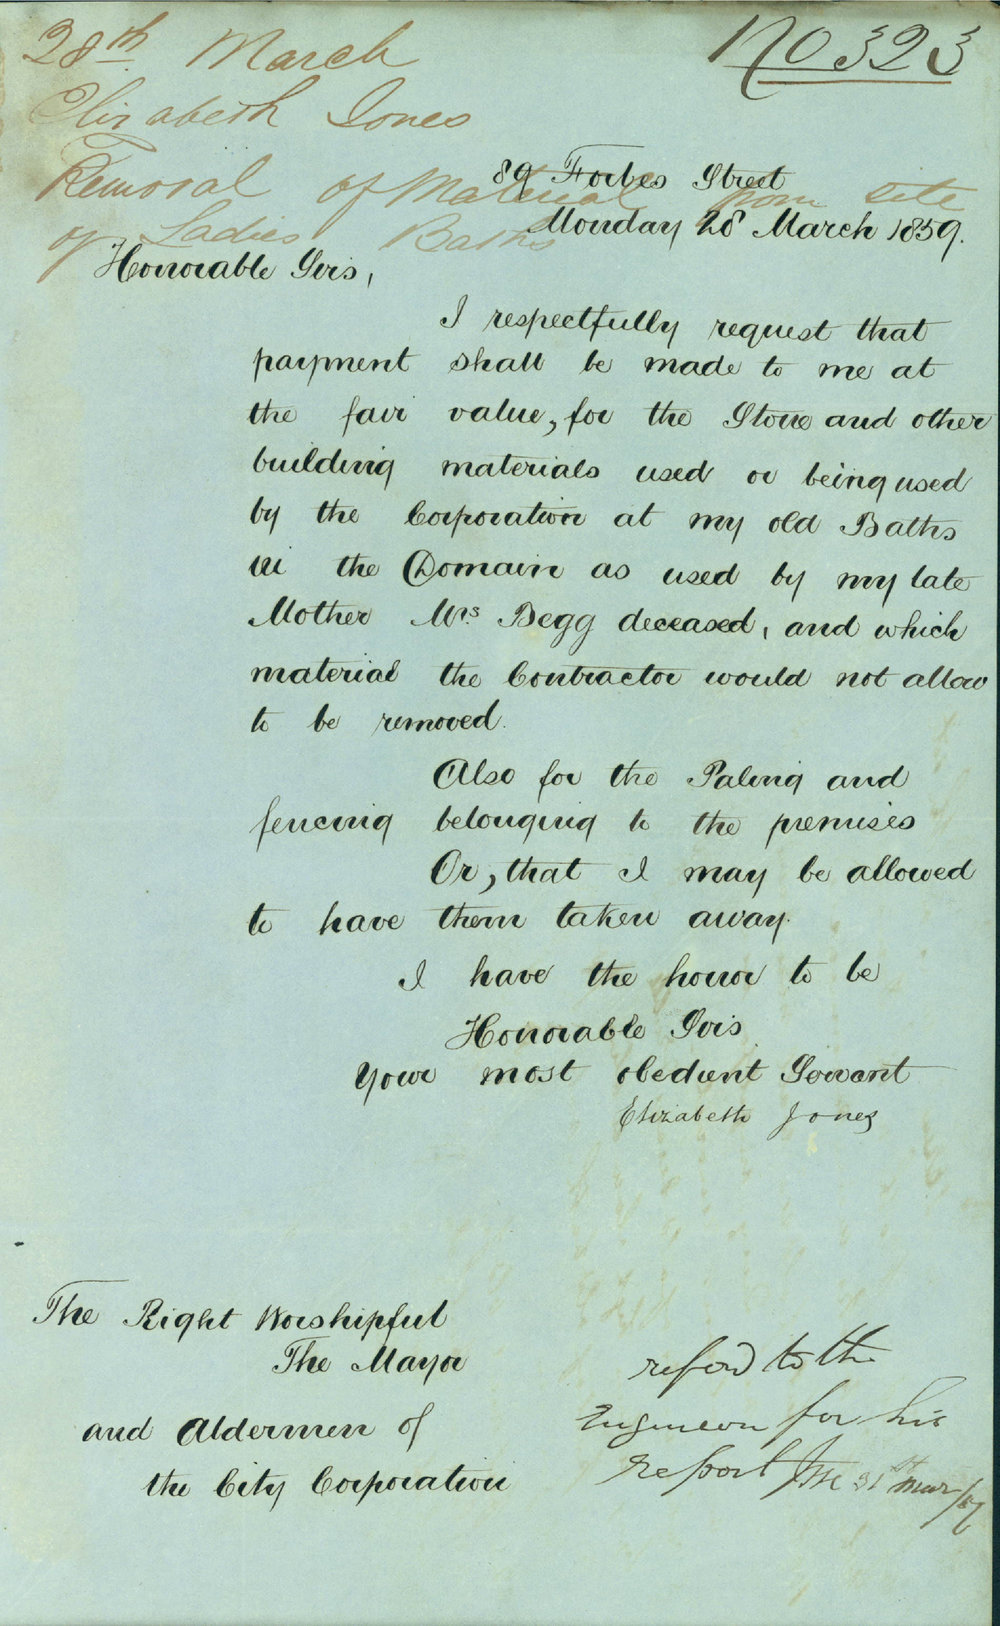 28th March
No 323
Elizabeth Jones
Removal of Material from site
of Ladies Baths
89 Forbes Street
Monday 28 March 1859.
Honorable Sirs,
I respectfully request that
payment shall be made to me at
the fair value, for the Stone and other
building materials used or being used
by the Corporation at my old Baths
in the Domain as used by my late
Mother Mrs. Begg deceased, and which
material the Contractor would not allow
to be removed.
Also for the Paling and
fencing belonging to the premises
Or, that I may be allowed
to have them taken away.
I have the honor to be
Honorable Sirs
Your most obedient Servant
Elizabeth Jones
The Right Worshipful
The Mayor
and Aldermen of
the City Corporation
referd to the
Engineer for his
report 31st Mar/59